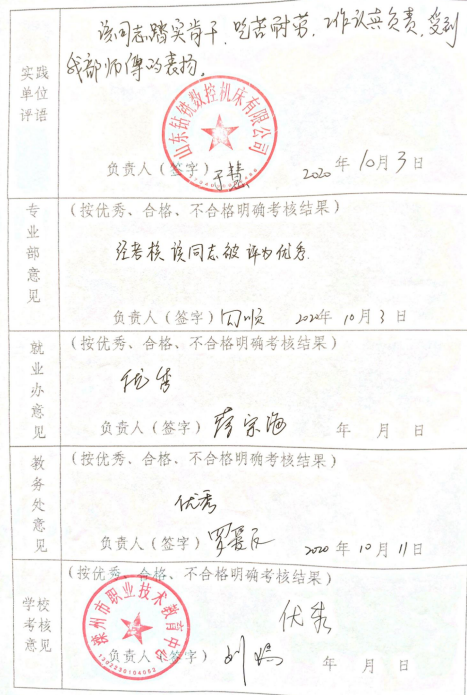 该同志踏实肯干、吃苦耐劳、工作认真负责、受到
我部师傅的表扬。
实践
单位
评语
山东钻铣数控机床有限公司
负责人（签字） 2020年10月3日
专业部意见
（按优秀、合格、不合格明确考核结果）
经考核该同志被评为优秀.
负责人（签字） 2020年10月3日
就业办意见
（按优秀、合格、不合格明确考核结果）
优秀
负责人（签字） 年 月 日
教务处意见
（按优秀、合格、不合格明确考核结果）
优秀
负责人（签字） 2020年10月11日
学校
考核
意见
（按优秀、合格、不合格明确考核结果）
优秀
市职业技术教育中心
负责人（签字） 刘 年 月 日